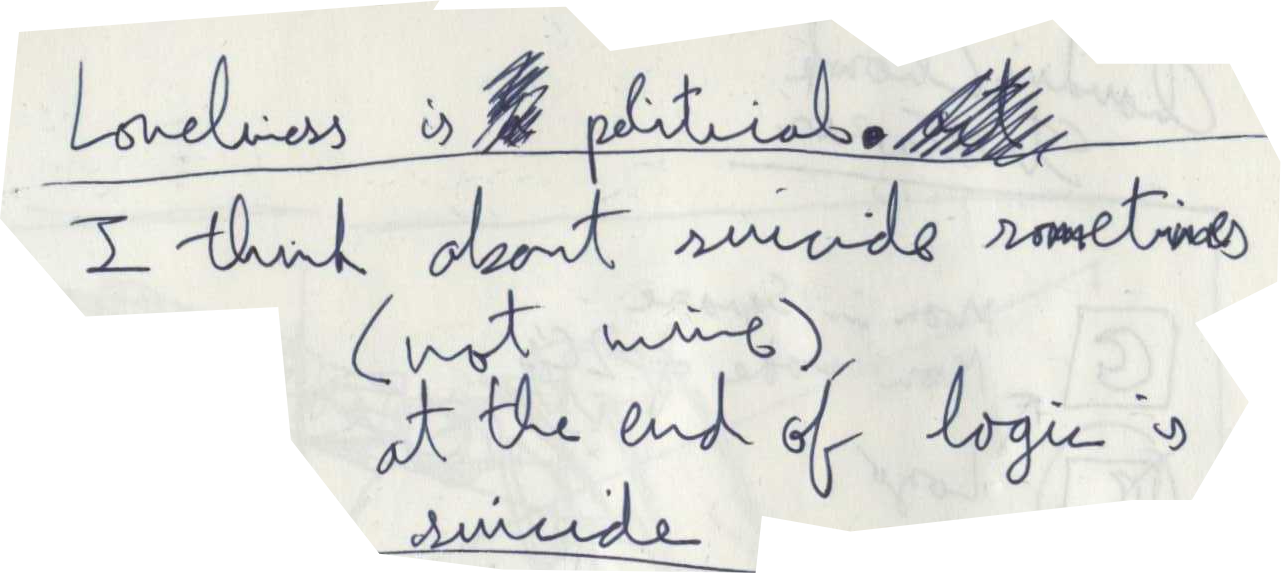 Loneliness is political.
I think about suicide sometimes
(not mine)
at the end of logic is
suicide